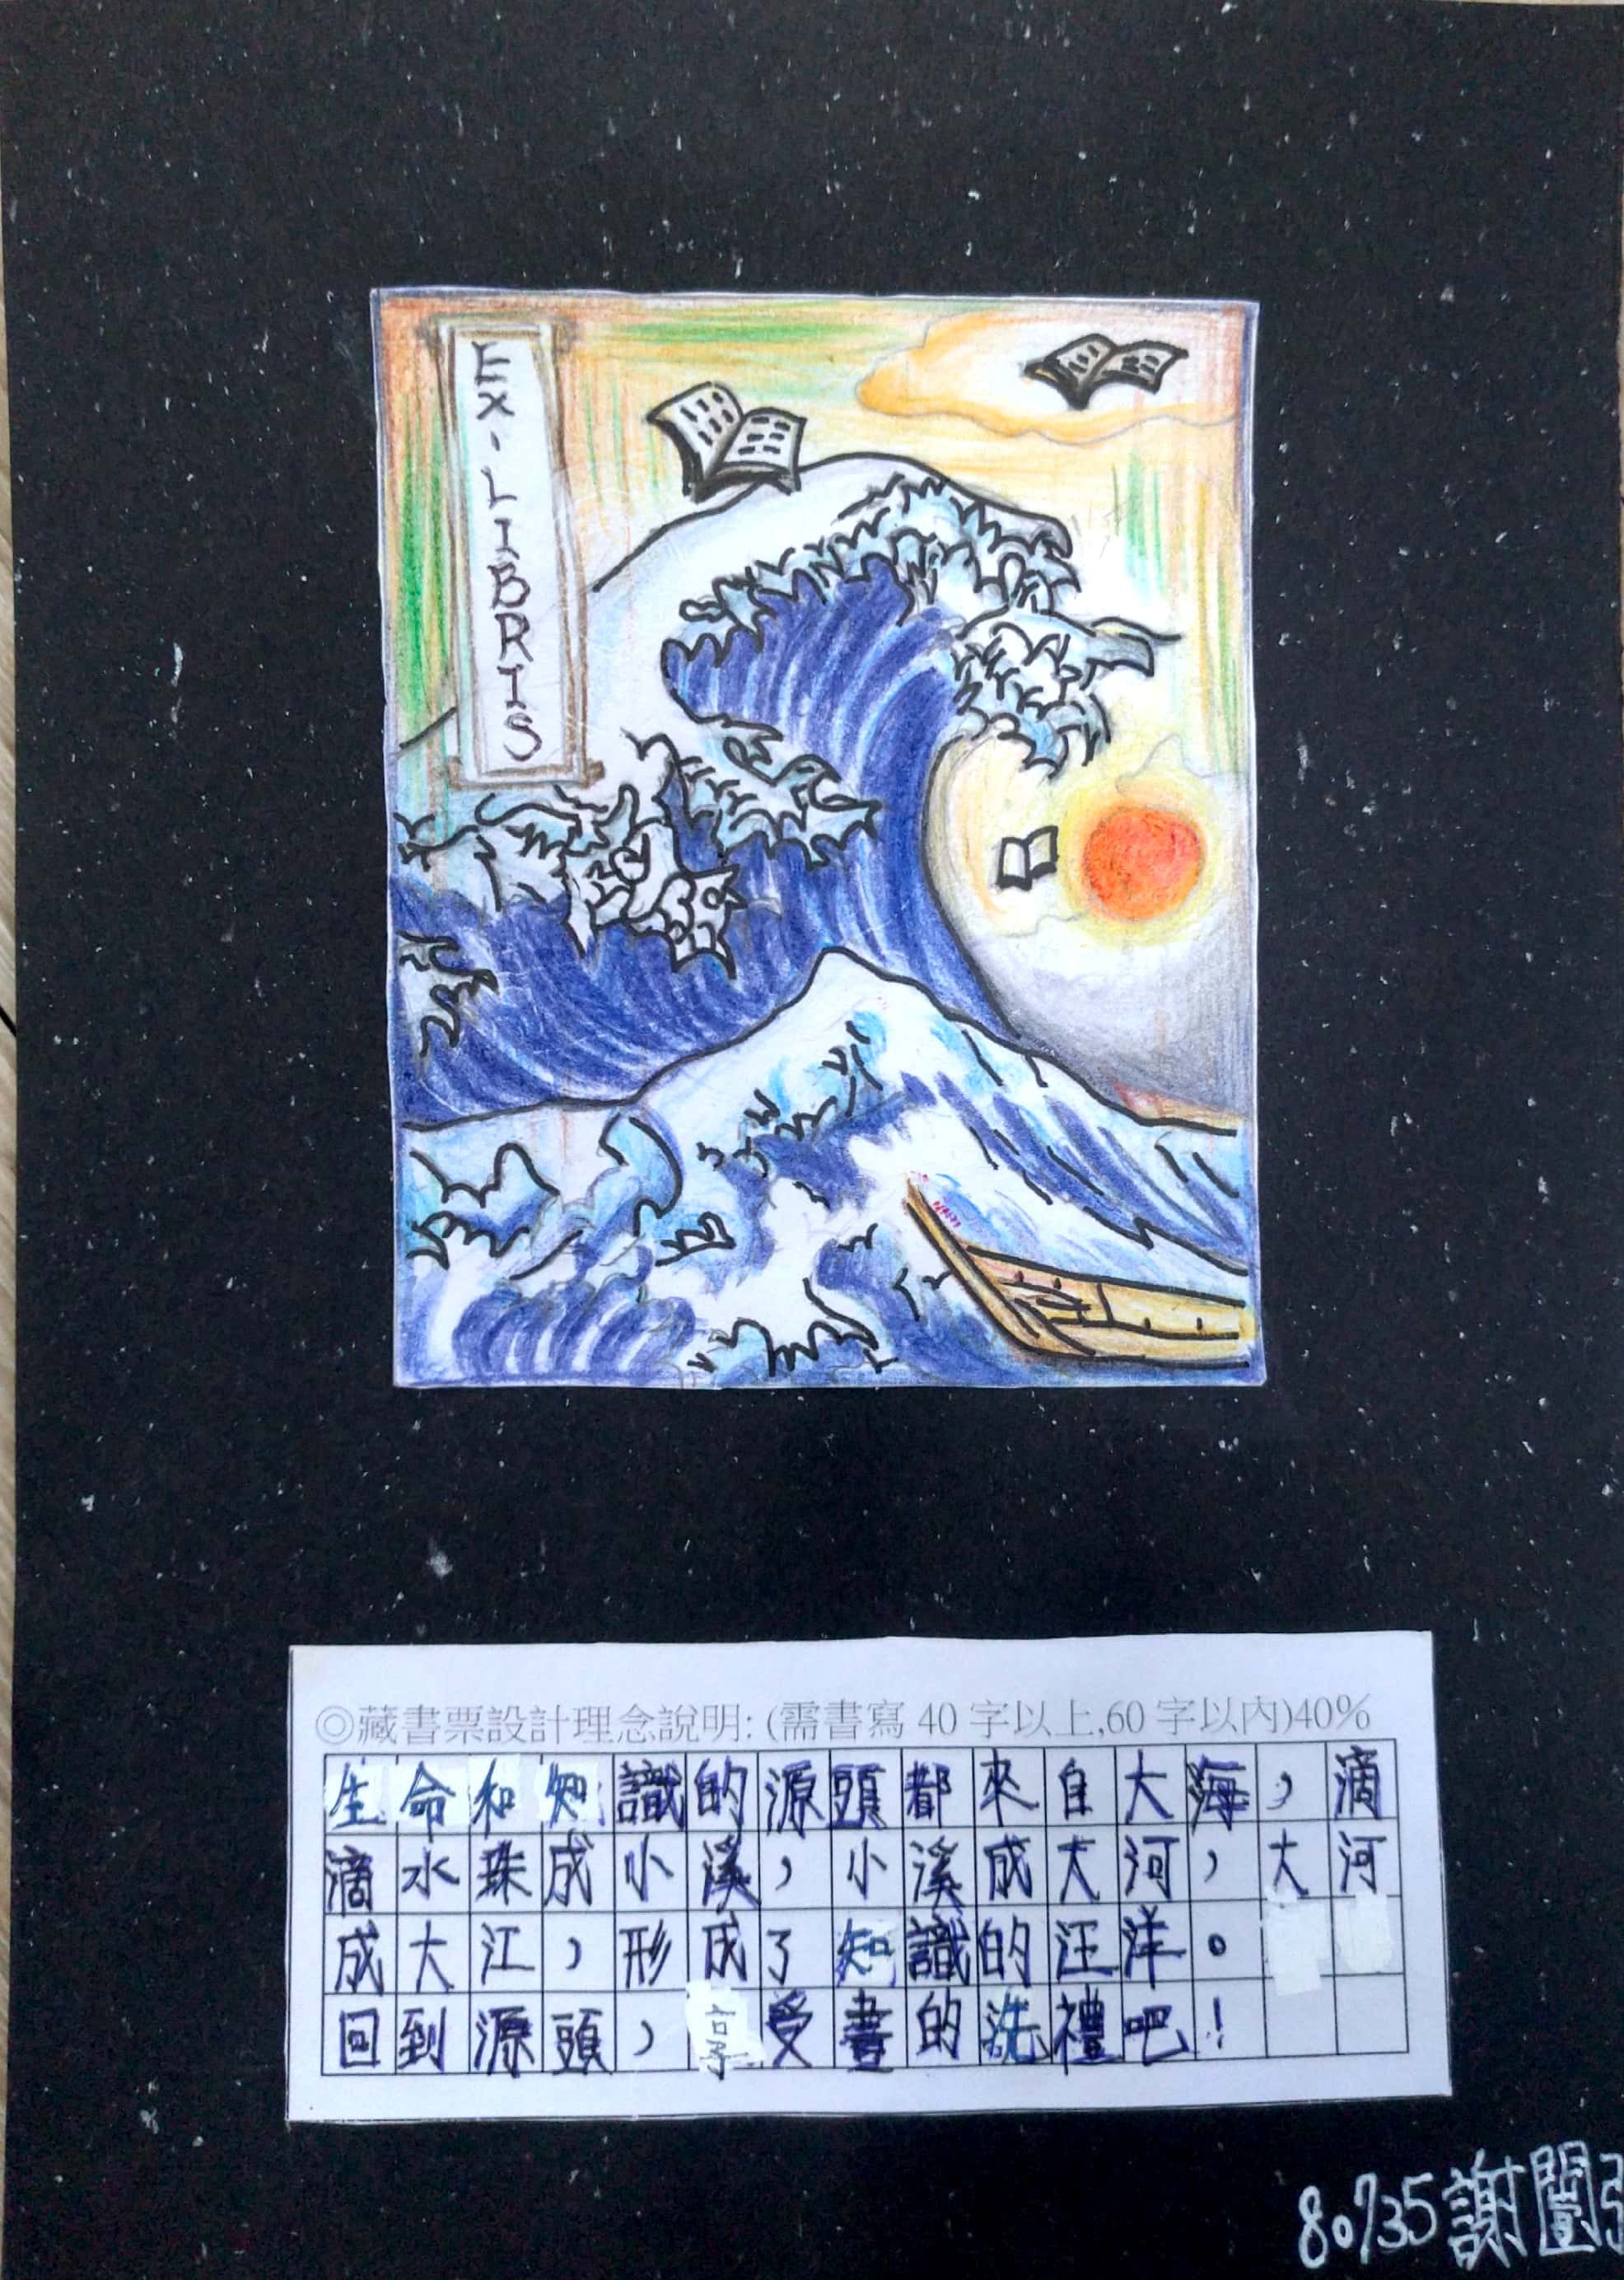 EX-LIBRIS
◎藏書票設計理念說明: (需書寫 40 字以上,60 字以內)40%
生命和知識的源頭都來自大海，滴
滴水珠成小溪，小溪成大河，大河
成大江，形成了知識的汪洋。
回到源頭，享受書的洗禮吧！
80735 謝闓